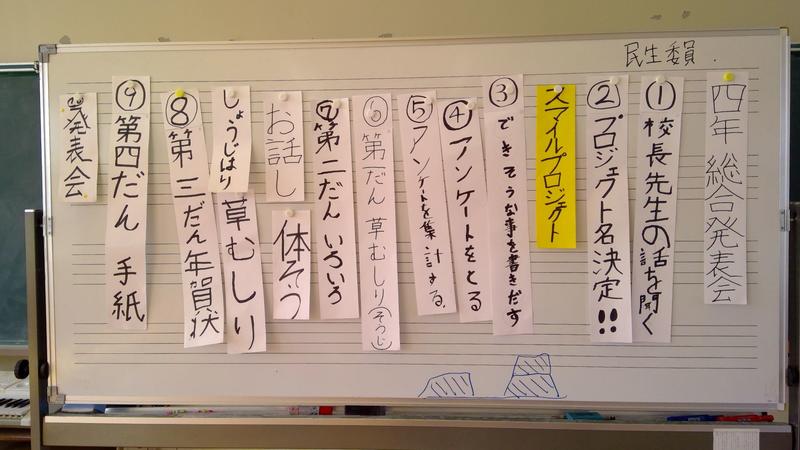 民生委員.
四年 総合発表会
①校長先生の話を聞く
②プロジェクト名決定!!
スマイルプロジェクト
③できそうな事を書きだす
④アンケートをとる
⑤アンケートを集計する.
⑥第一だん 草むしり(そうじ)
⑦第二だん いろいろ
お話し
体そう
しょうじはり
草むしり
⑧第三だん年賀状
⑨第四だん 手紙
発表会